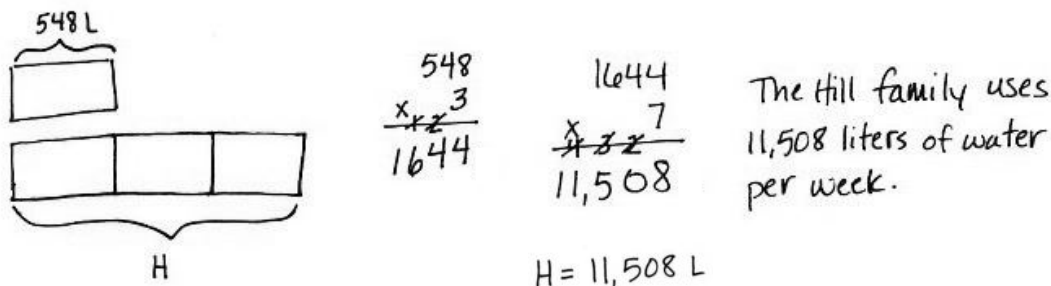 548 L
H
548
x 3
1 2
1644
1644
x 7
4 3 2
11,508
H = 11,508 L
The Hill family uses
11,508 liters of water
per week.